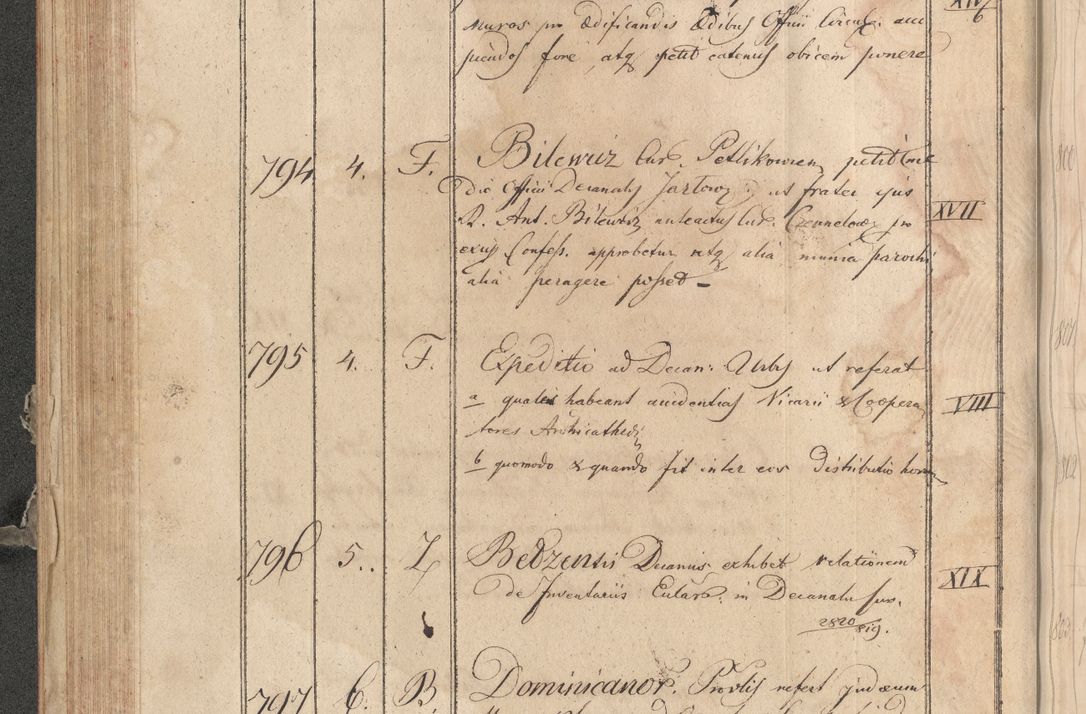 muros pro Ædificandis Ædibus Officii Circul.
XIV/6
fore, atq petit catenis obicem ponere
794 4. F. Bilewicz Cur. Petlikowien. petit
Officii Decanalis Jazlow: ut frater ejus
R. Ant. Bilewicz anteactus Cur. pro XVII
Confess. approbetur atq alia munia parochi
alia peragere posset –
795 4. F. Expeditio ad Decan: Urbis ut referat
a quales habeant accidentias Vicarii & Coopera VIII
tores Archicathedr
b quomodo & quando fit inter eos Distributio horum
796 5.. Z Betzensis Decanus exhibet relationem
de Inventariis Eccl. in Decanatu suo. XIX
2820/819.
797 6. B. Dominicanor. Provlis refert judæum